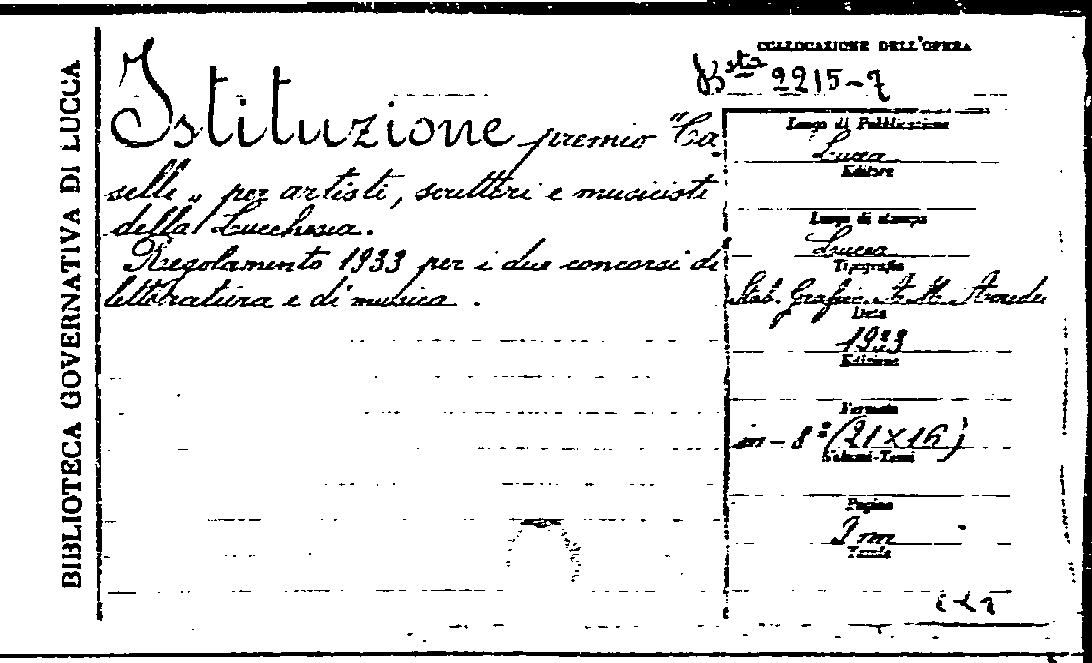 BIBLIOTECA GOVERNATIVA DI LUCCA
Istituzione premio "Ca-
selli„ per artisti, scrittori e musicisti
della Lucchesia.
Regolamento 1933 per i due concorsi di
letteratura e di musica.
COLLOCAZIONE DELL'OPERA
Bsta 2215-7
Luogo di Pubblicazione
Lucca
Editore
Luogo di stampa
Lucca
Tipografia
Stab. Grafic. A. M. Amedei
Data
1933
Edizione
Formato
in-8° (21×16)
Volumi-Tomi
Pagine
Tavole